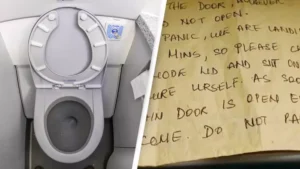 THE DOOR, HOWEVER
DO NOT OPEN.
PANIC, WE ARE LANDI
MINS, SO PLEASE C
MODE LID AND SIT ON
URE URSELF. AS SOO
IN DOOR IS OPEN E
COME. DO NOT PA